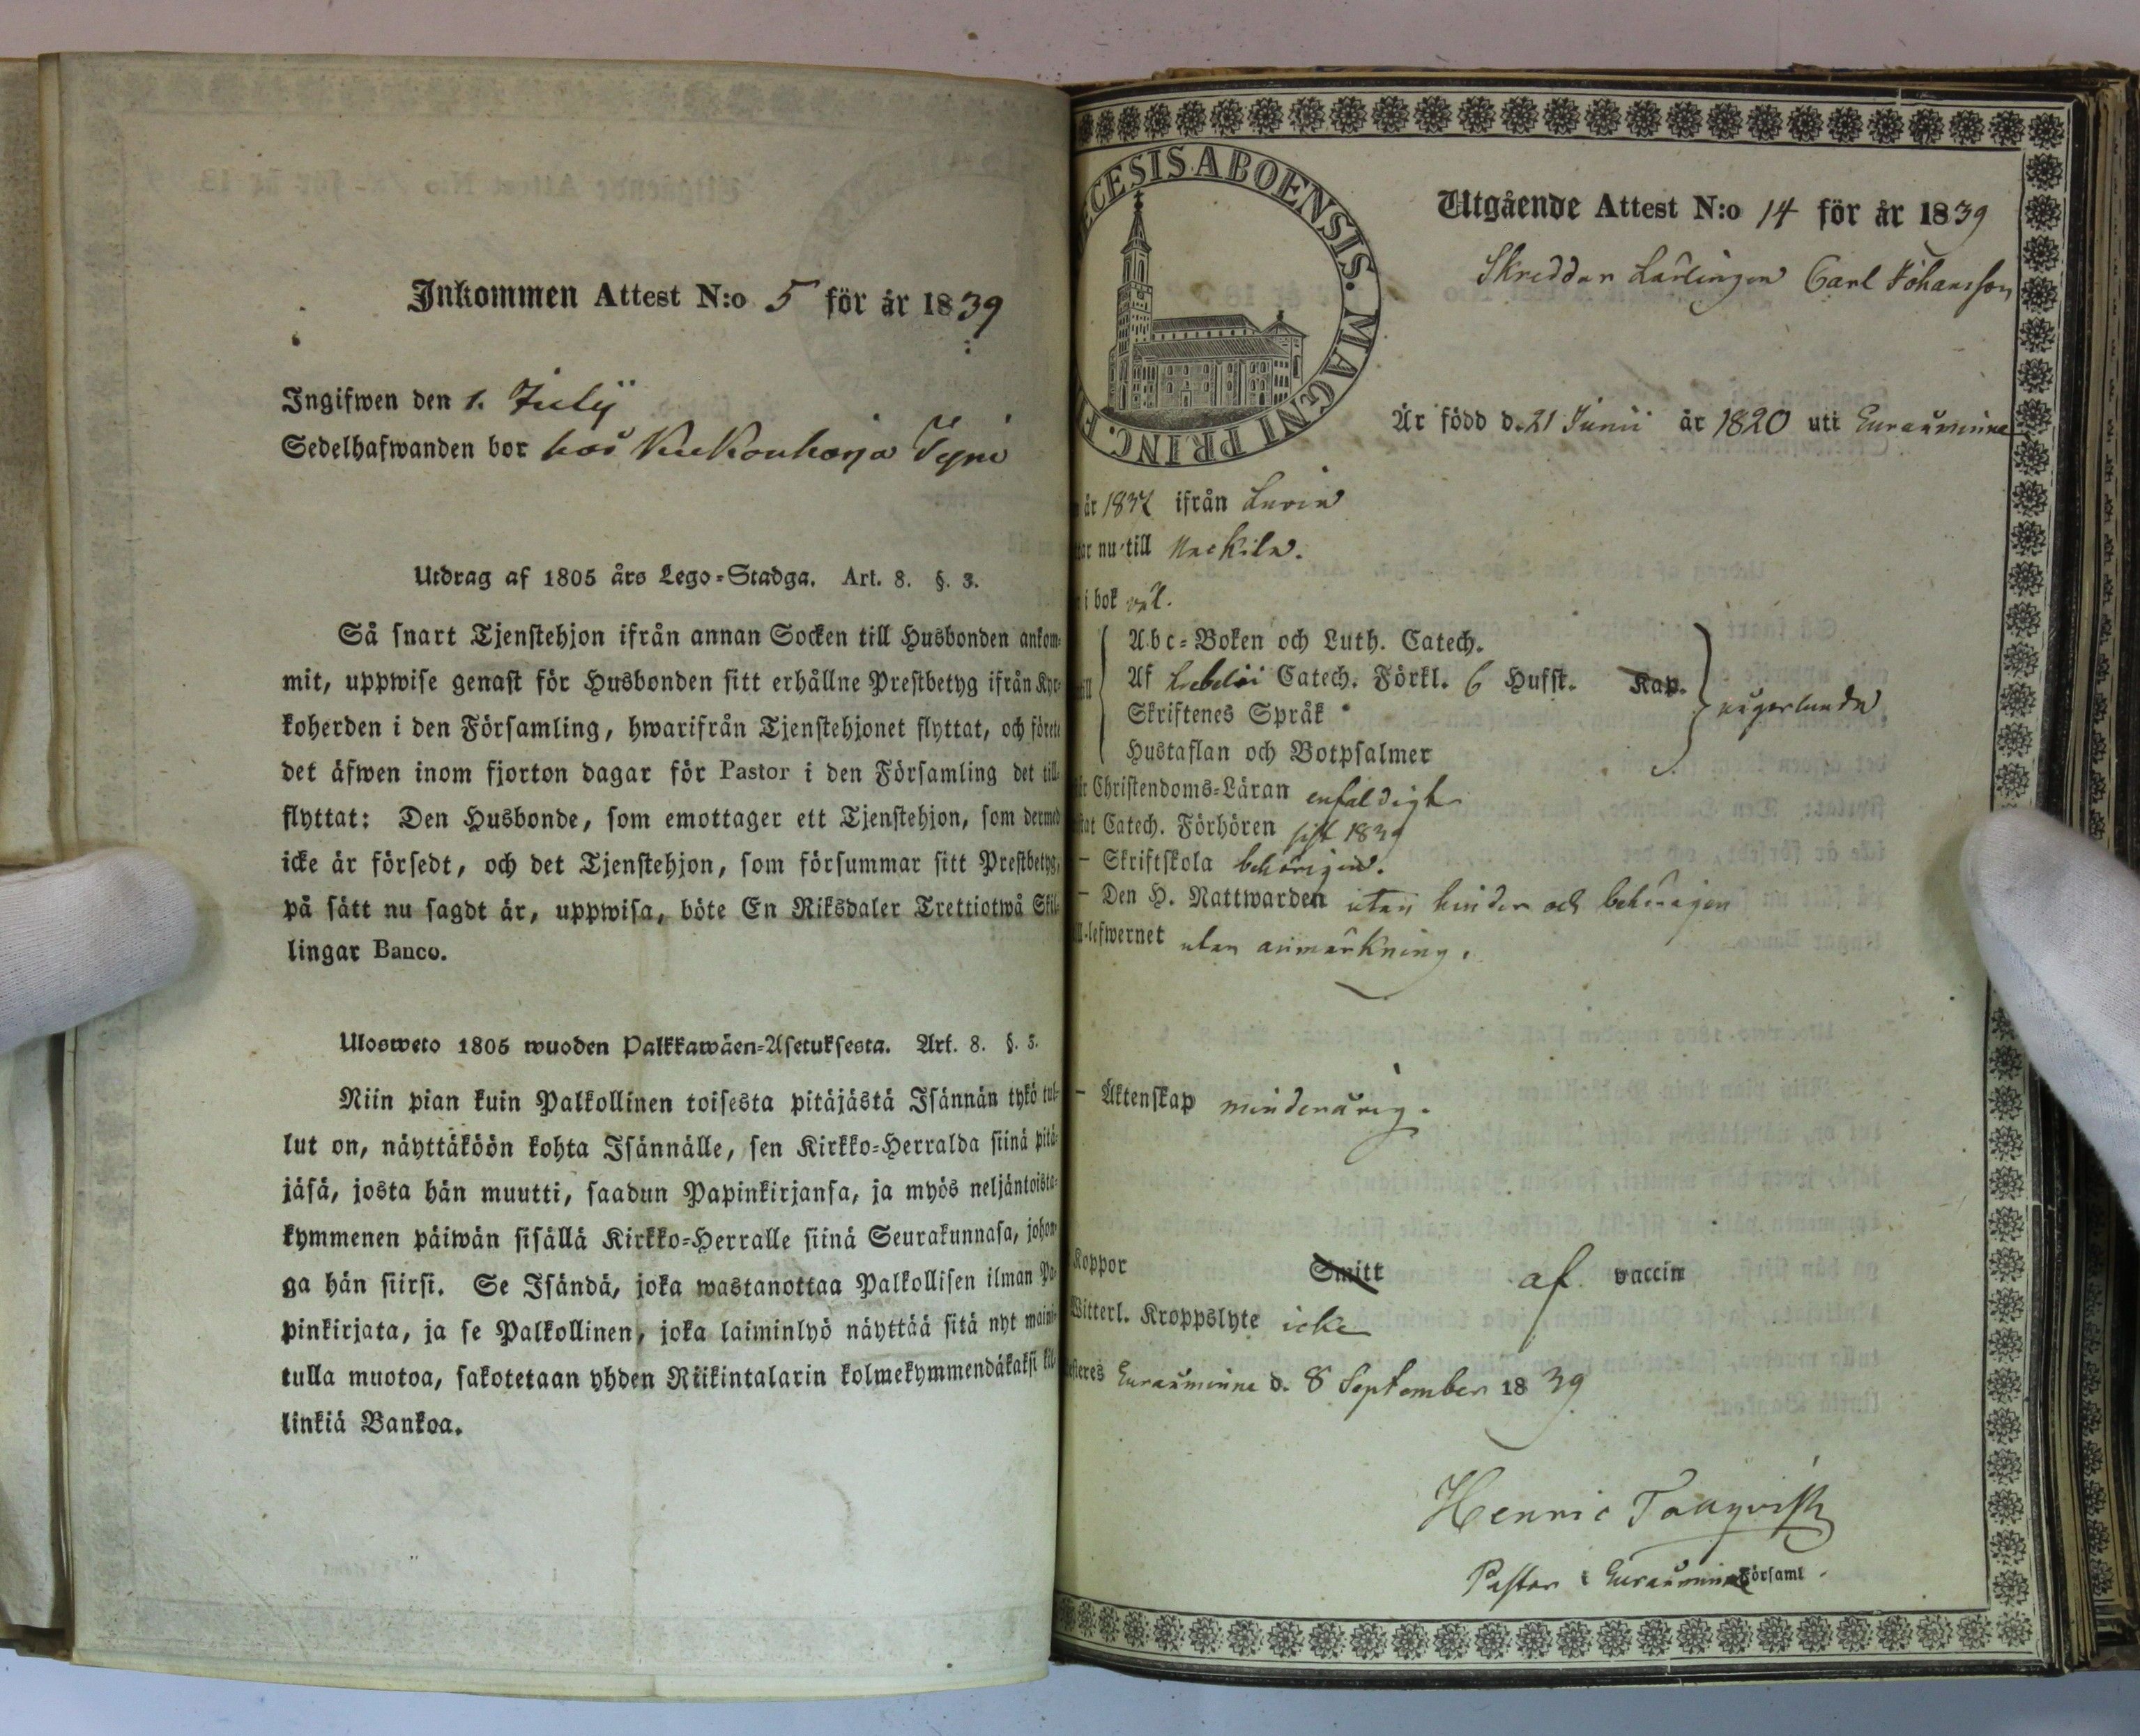 Inkommen Attest N:o 5 för år 1839
Ingifwen den 1. Julÿ
Sedelhafwanden bor hos Kukonharja
Utdrag af 1805 års Lego-Stadga. Art. 8. §. 3.
Så snart Tjenstehjon ifrån annan Socken till Husbonden ankom-
mit, uppwise genast för Husbonden sitt erhållne Prestbetyg ifrån Kyr-
koherden i den Församling, hwarifrån Tjenstehjonet flyttat, och förete
det äfwen inom fjorton dagar för Pastor i den Församling det till-
flyttat: Den Husbonde, som emottager ett Tjenstehjon, som dermed
icke är försedt, och det Tjenstehjon, som försummar sitt Prestbetyg,
på sätt nu sagdt är, uppwisa, böte En Riksdaler Trettiotwå Skil-
lingar Banco.
Ulosweto 1805 wuoden Palkkawäen-Asetuksesta. Art. 8. §. 3.
Niin pian kuin Palkollinen toisesta pitäjästä Isännän tykö tul-
lut on, näyttäköön kohta Isännälle, sen Kirkko-Herralda siinä pitä-
jäsä, josta hän muutti, saadun Papinkirjansa, ja myös neljäntoista-
kymmenen päiwän sisällä Kirkko-Herralle siinä Seurakunnasa, johon-
ga hän siirsi. Se Isändä, joka wastanottaa Palkollisen ilman Pa-
pinkirjata, ja se Palkollinen, joka laiminlyö näyttää sitä nyt maini-
tulla muotoa, sakotetaan yhden Riikintalarin kolmekymmendäkaksi kil-
linkiä Bankoa.
CESIS ABOENSIS. MAGNI PRINC. F
Utgående Attest N:o 14 för år 1839
Skreddar Lärlingen Carl Johansson
Är född d. 21 Junii år 1820 uti Euraåminne
år 1837 ifrån Luvia
nu till Nackila.
i bok väl.
Abc-Boken och Luth. Catech.
Af Catech. Förkl. 6 Hufst. Kap.
Skriftenes Språk
någorlunda
Hustaflan och Botpsalmer
Christendoms-Läran enfaldigt
Catech. Förhören sist 1839
– Skriftskola behörigen.
– Den H. Nattwarden utan hinder och behörigen
lefwernet utan anmärkning.
– Äktenskap minderårig.
Koppor Smitt af vaccin
Witterl. Kroppslyte icke
Euraåminne d. 8 September 1839
Henric
Pastor i Euraåminne Församl.